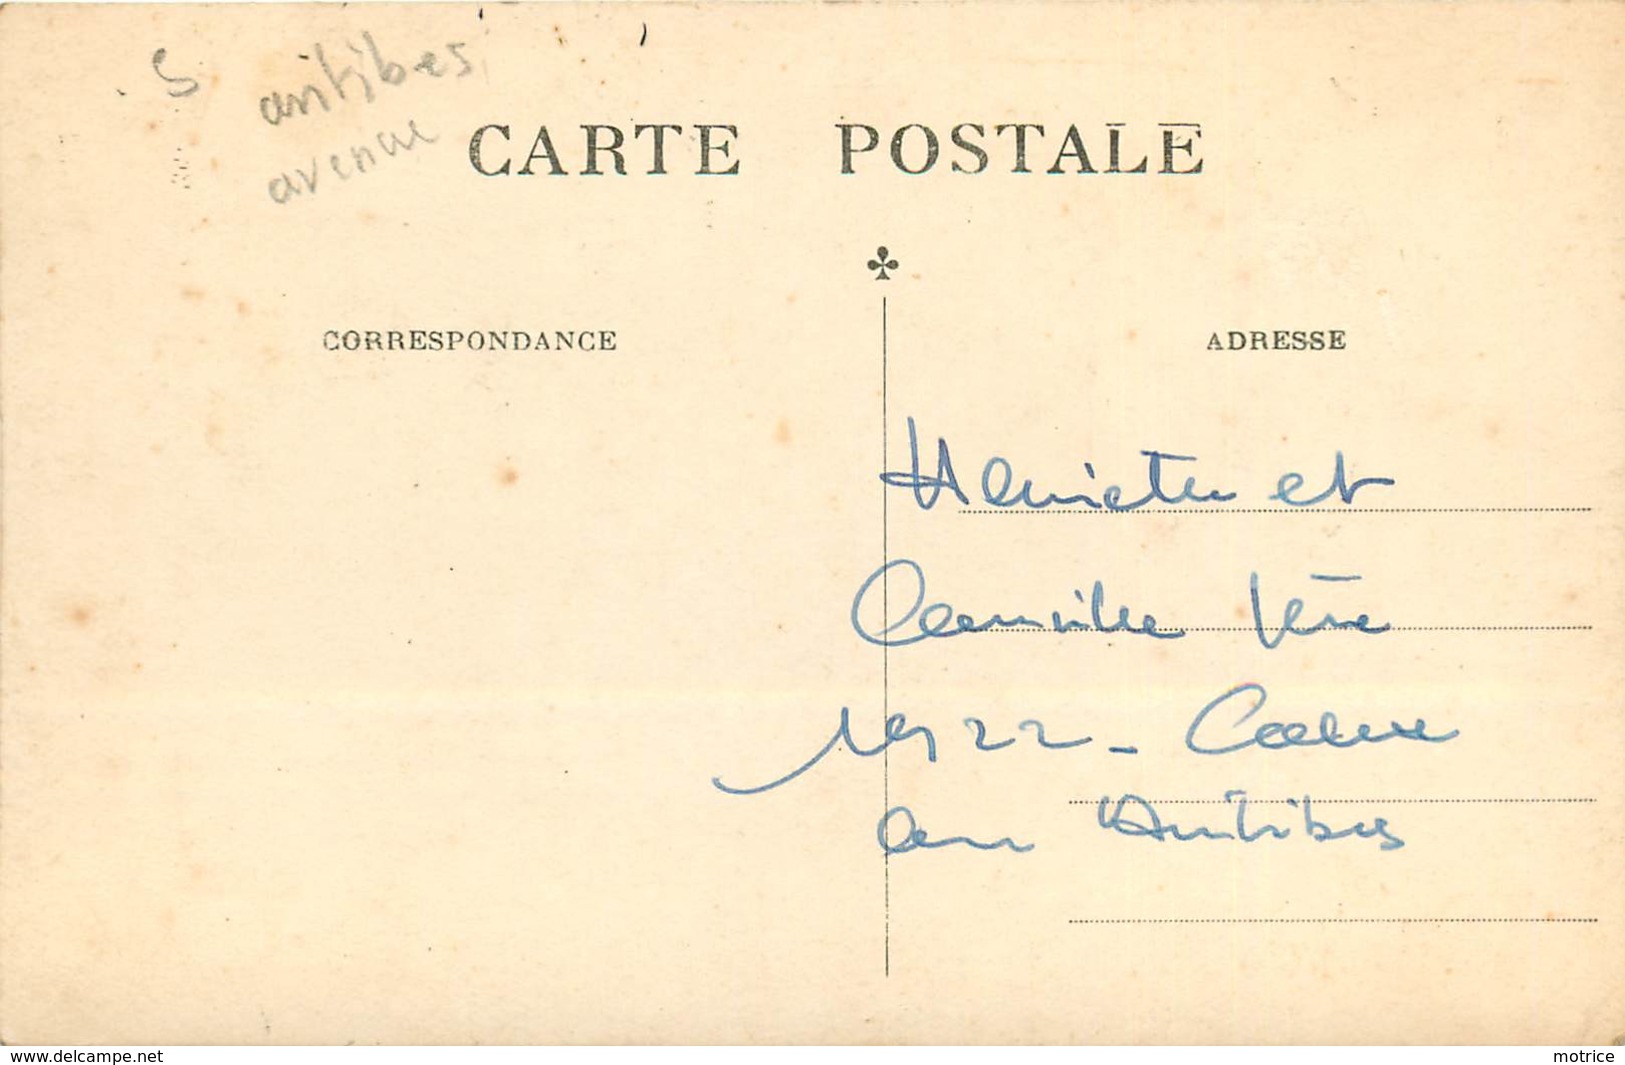 S antibes
avenue
CARTE POSTALE
CORRESPONDANCE
ADRESSE
Henriette et
Camille
1922 -
Antibes
www.delcampe.net
motrice